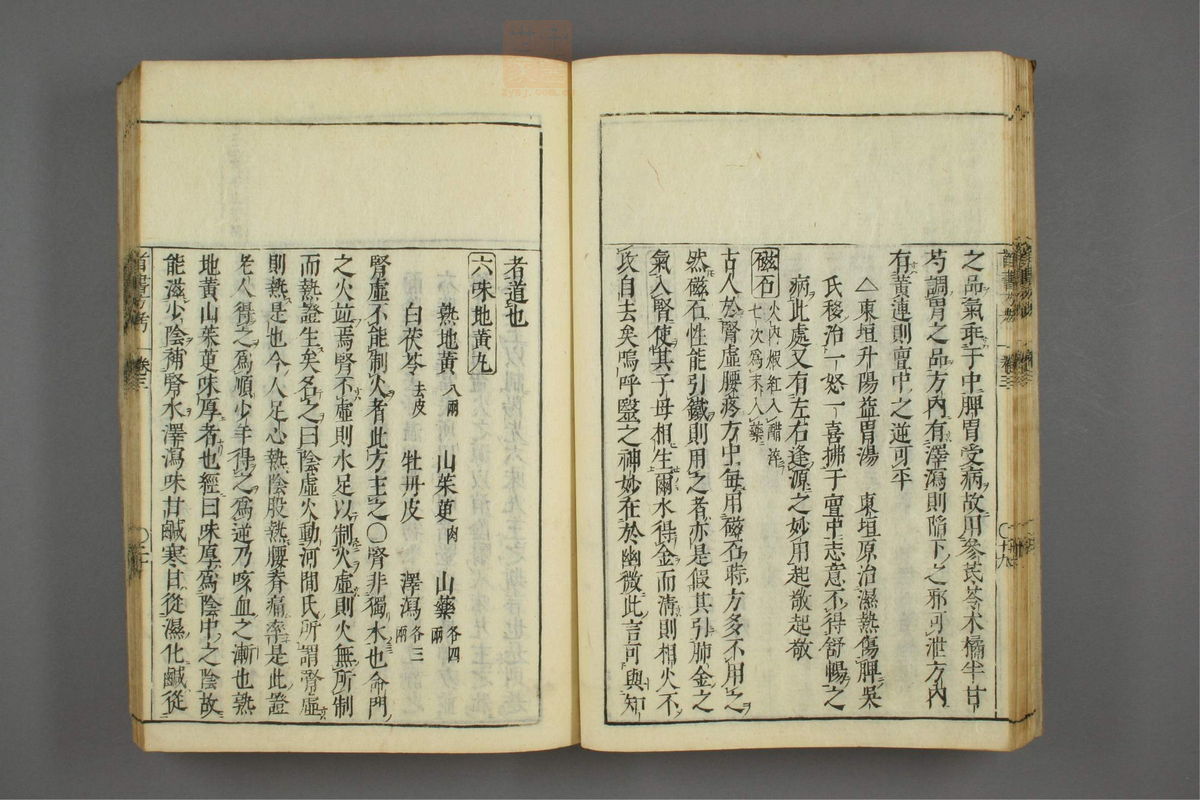 之品氣乖于中脾胃受病故用參芪苓术橘半甘
芍調胃之品方內有澤瀉則陷下之邪可泄方內
有黃連則亶中之逆可平
△東垣升陽益胃湯 東垣原治濕熱傷脾吳
氏移治一怒一喜拂于亶中志意不得舒暢之
病此處又有左右逢源之妙用起敬起敬
磁石 火內煆紅入醋淬
七次爲末入藥
古人於腎虛腰疼方中每用磁石時方多不用之
然磁石性能引鐵則用之者亦是假其引肺金之
氣入腎使其子母相生爾水得金而清則相火不
攻自去矣嗚呼醫之神妙在於幽微此言可與知
者道也
六味地黃丸
熟地黃 八兩 山茱萸 肉 山藥 各四兩
白茯苓 去皮 牡丹皮 澤瀉 各三兩
腎虛不能制火者此方主之○腎非獨水也命門
之火竝焉腎不虛則水足以制火虛則火無所制
而熱證生矣名之曰陰虛火動河間氏所謂腎虛
則熱是也今人足心熱陰股熱腰脊痛率是此證
老人得之爲順少年得之爲逆乃咳血之漸也熟
地黃山茱萸味厚者也經曰味厚爲陰中之陰故
能滋少陰補腎水澤瀉味甘鹹寒甘從濕化鹹從
卷三